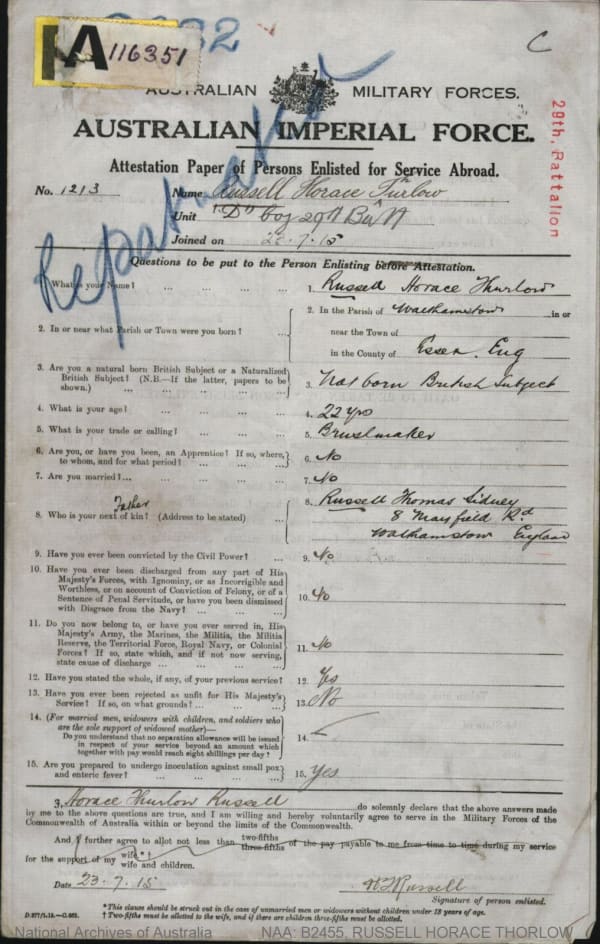 A 116351
C
AUSTRALIAN MILITARY FORCES.
AUSTRALIAN IMPERIAL FORCE.
29th. Battalion
Attestation Paper of Persons Enlisted for Service Abroad.
Repatriated
No. 1213 Name Russell Horace Turlow
Unit "D" Coy 29th Batt
Joined on 22.7.15
Questions to be put to the Person Enlisting before Attestation.
1. What is your Name? ... ... ... ... 1. Russell Horace Thurlow
2. In or near what Parish or Town were you born? ... 2. In the Parish of Walthamstow in or
near the Town of
in the County of Essex. Eng
3. Are you a natural born British Subject or a Naturalized
British Subject? (N.B.—If the latter, papers to be
shown.) ... ... ... ... 3. Nat born British Subject
4. What is your age? ... ... ... ... 4. 22 yrs
5. What is your trade or calling? ... ... ... 5. Brushmaker
6. Are you, or have you been, an Apprentice? If so, where,
to whom, and for what period? ... ... ... 6. No
7. Are you married?... ... ... ... 7. No
Father
8. Who is your next of kin? (Address to be stated) ... 8. Russell Thomas Sidney
8 Mayfield Rd
Walthamstow England
9. Have you ever been convicted by the Civil Power? ... 9. No
10. Have you ever been discharged from any part of His
Majesty's Forces, with Ignominy, or as Incorrigible and
Worthless, or on account of Conviction of Felony, or of a
Sentence of Penal Servitude, or have you been dismissed
with Disgrace from the Navy? ... ... 10. No
11. Do you now belong to, or have you ever served in, His
Majesty's Army, the Marines, the Militia, the Militia
Reserve, the Territorial Force, Royal Navy, or Colonial
Forces? If so, state which, and if not now serving,
state cause of discharge ... ... ... 11. No
12. Have you stated the whole, if any, of your previous service? 12. Yes
13. Have you ever been rejected as unfit for His Majesty's
Service? If so, on what grounds? ... ... 13. No
14. (For married men, widowers with children, and soldiers who
are the sole support of widowed mother)—
Do you understand that no separation allowance will be issued
in respect of your service beyond an amount which
together with pay would reach eight shillings per day? 14.
15. Are you prepared to undergo inoculation against small pox
and enteric fever? ... ... ... 15. Yes
I, Horace Thurlow Russell do solemnly declare that the above answers made
by me to the above questions are true, and I am willing and hereby voluntarily agree to serve in the Military Forces of the
Commonwealth of Australia within or beyond the limits of the Commonwealth.
And I further agree to allot not less than two-fifths three-fifths of the pay payable to me from time to time during my service
for the support of my wife.*† wife and children.
Date 23.7.15 H T Russell
Signature of person enlisted.
* This clause should be struck out in the case of unmarried men or widowers without children under 18 years of age.
† Two-fifths must be allotted to the wife, and if there are children three-fifths must be allotted.
National Archives of Australia NAA: B2455, RUSSELL HORACE THORLOW